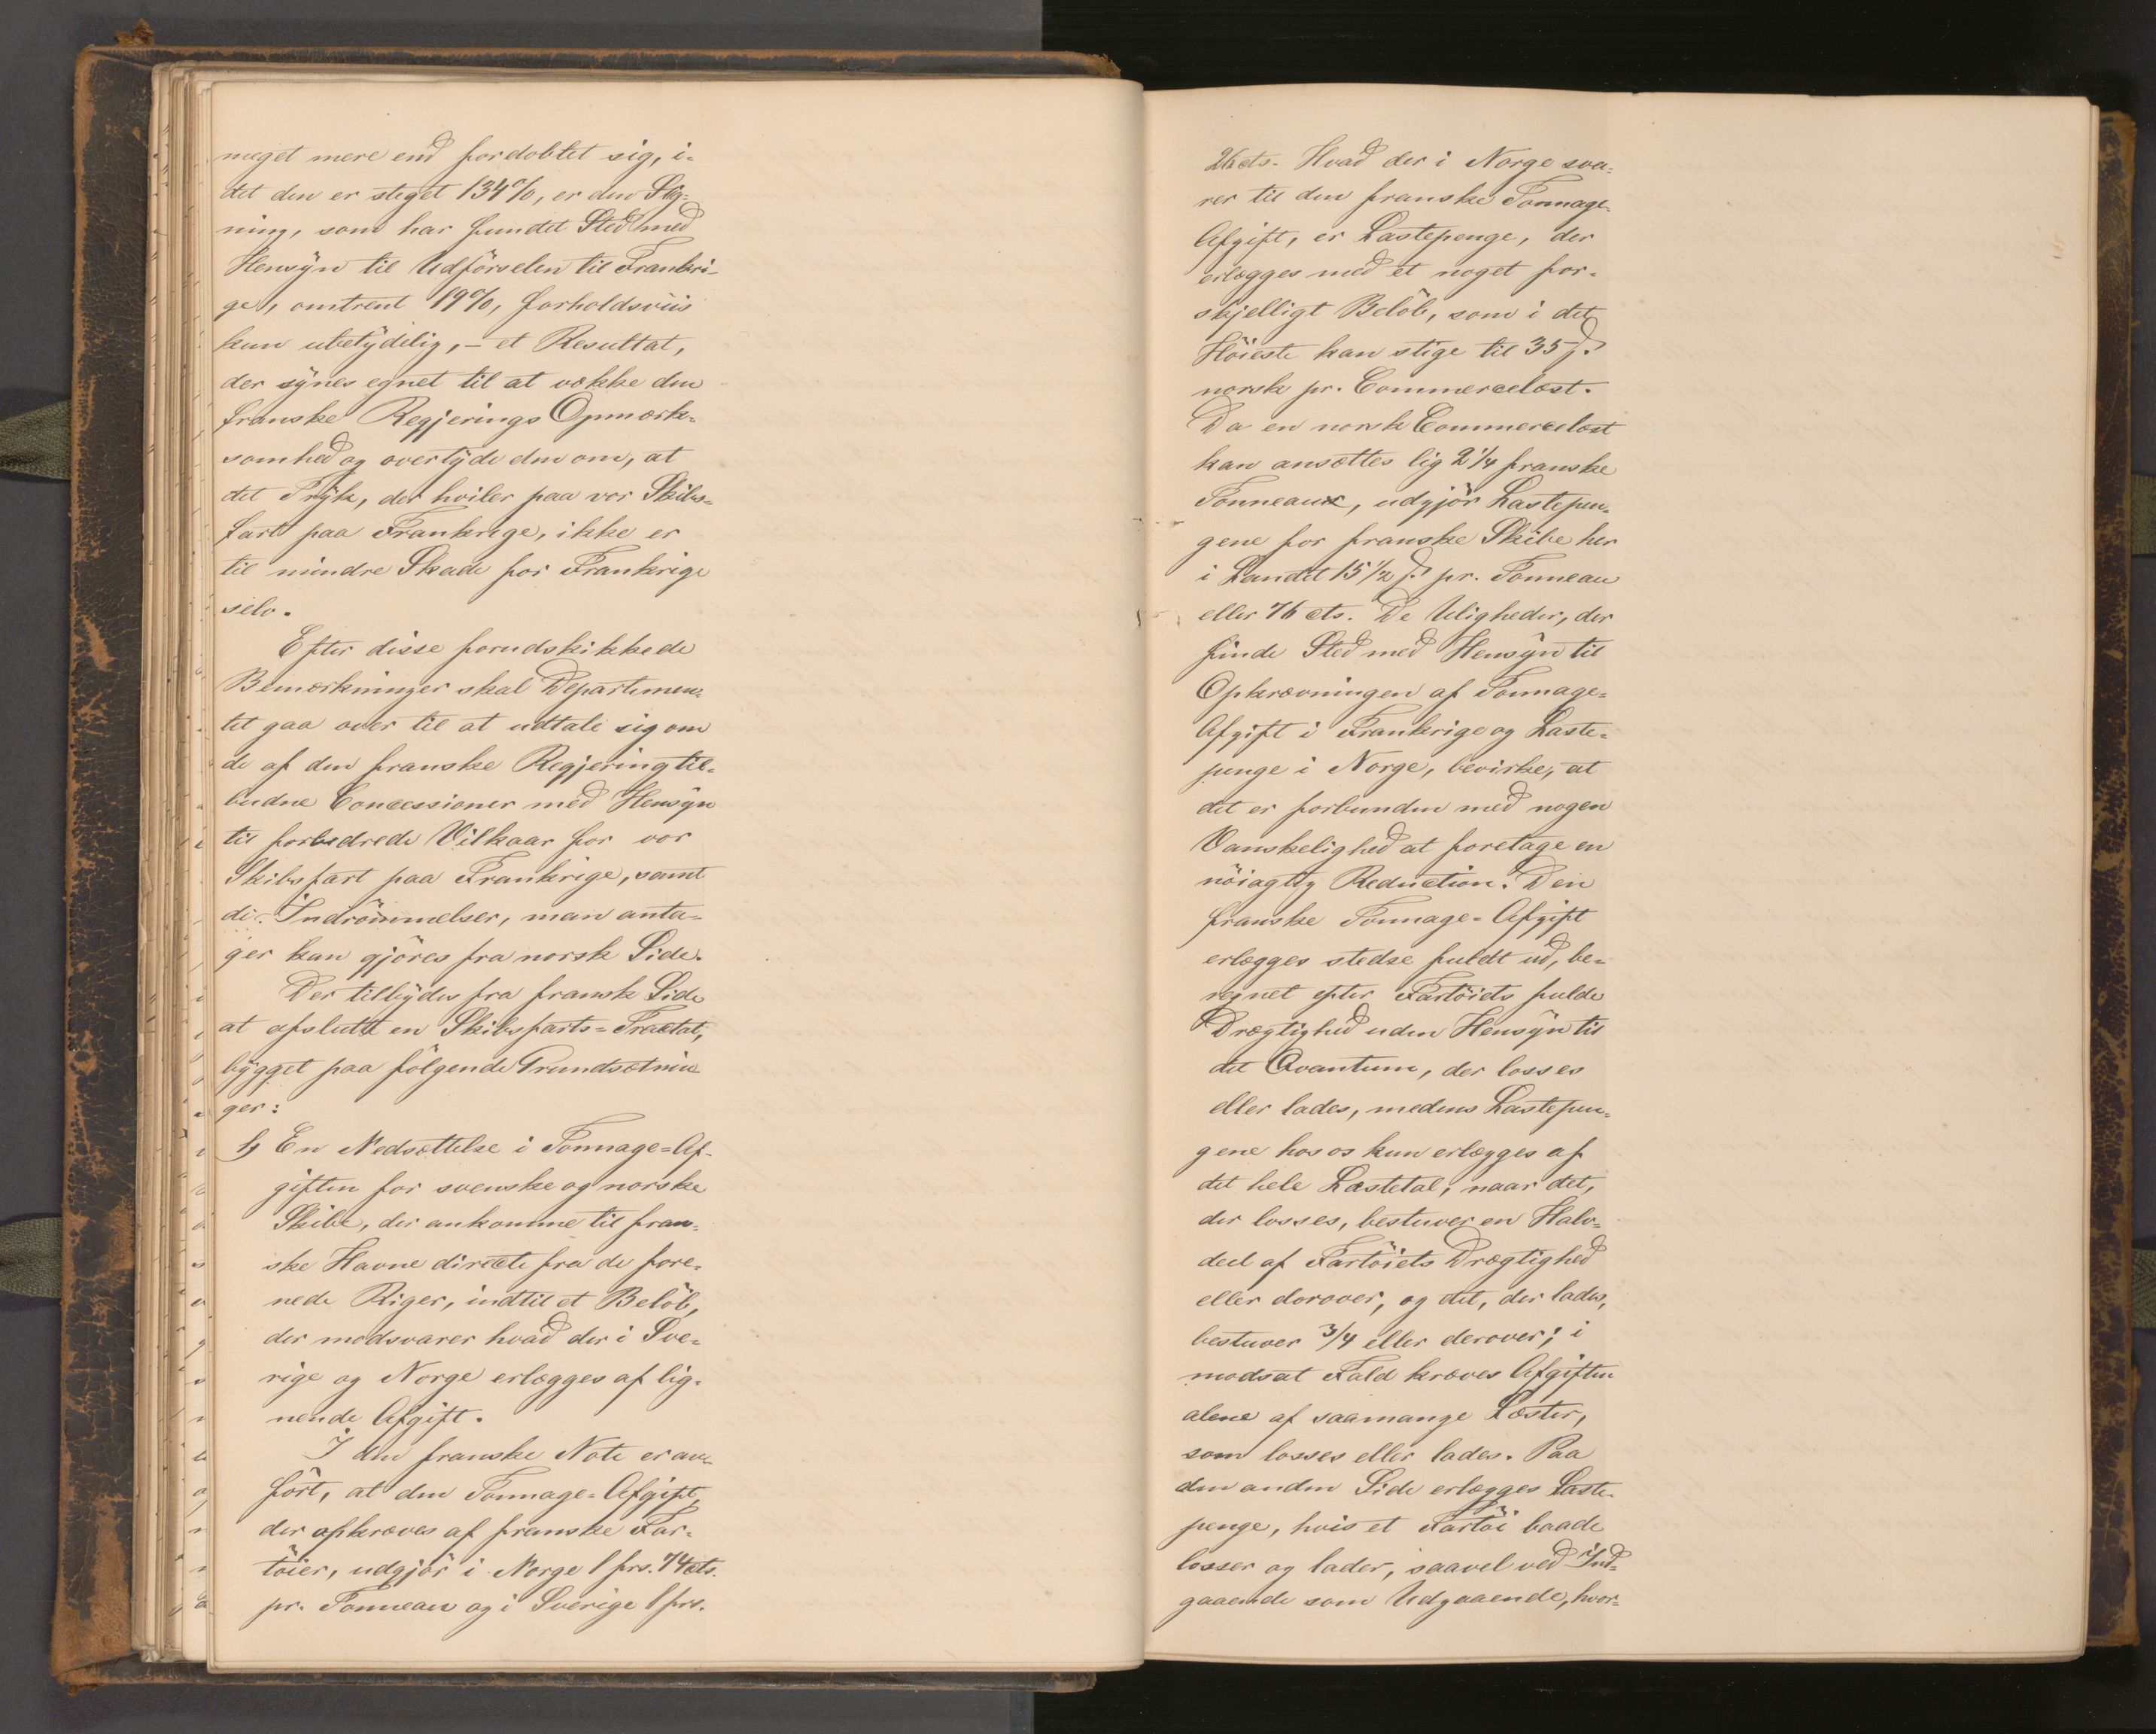 meget mere end fordoblet sig, i-
det den er steget 134%, er den Stig-
ning, som har fundet Sted med
Hensÿn til Udförselen til Frankri-
ge, omtrent 19%, forholdsviis
kun ubetÿdelig, – et Resultat,
der sÿnes egnet til at vække den
franske Regjerings Opmærk-
somhed og overtÿde den om, at
det Trÿk, der hviler paa vor Skibs-
fart paa Frankrige, ikke er
til mindre Skade for Frankrige
selv.
Efter disse forudskikkede
Bemærkninger skal Departemen-
tet gaa over til at udtale sig om
de af den franske Regjering til-
budne Concessioner med Hensÿn
til forbedrede Vilkaar for vor
Skibsfart paa Frankrige, samt
de Indrömmelser, man anta-
ger kan gjöres fra norsk Side.
Der tilbÿdes fra fransk Side
at afslutte en Skibsfarts=Tractat,
bÿgget paa fölgende Grundsætnin-
ger:
1) En Nedsættelse i Tonnage=Af-
giften for svenske og norske
Skibe, der ankomme til fran-
ske Havne directe fra de fore-
nede Riger, indtil et Belöb,
der modsvarer hvad der i Sve-
rige og Norge erlægges af lig-
nende Afgift.
I den franske Note er an-
fört, at den Tonnage=Afgift,
der opkræves af franske Far-
töier, udgjör i Norge 1 frs. 74 cts.
pr. Tonneau og i Sverige 1 frs.
26 cts. Hvad der i Norge sva-
rer til den franske Tonnage-
Afgift, er Lastepenge, der
erlægges med et noget for-
skjelligt Belöb, som i det
Höieste kan stige til 35 ß
norsk pr. Commercelæst.
Da en norsk Commercelæst
kan ansættes lig 2 1/4 franske
Tonneaux, udgjör Lastepen-
gene for franske Skibe her
i Landet 15 1/2 ß pr. Tonneau
eller 76 cts. De Uligheder, der
finde Sted med Hensÿn til
Opkrævningen af Tonnage-
Afgift i Frankrige og Laste-
penge i Norge, bevirke, at
det er forbunden med nogen
Vanskelighed at foretage en
nöiagtig Reduction. Den
franske Tonnage=Afgift
erlægges stedse fuldt ud, be-
regnet efter Fartöiets fulde
Drægtighed uden Hensÿn til
det Qvantum, der losses
eller lades, medens Lastepen-
gene hos os kun erlægges af
det hele Læstetal, naar det,
der losses, bestuver en Halv-
deel af Fartöiets Drægtighed
eller derover, og det, der lades,
bestuver 3/4 eller derover; i
modsat Fald kræves Afgiften
alene af saamange Læster,
som losses eller lades. Paa
den anden Side erlægges Laste-
penge, hvis et Fartöi baade
losser og lader, saavel ved Ind-
gaaende som Udgaaende, hvor-